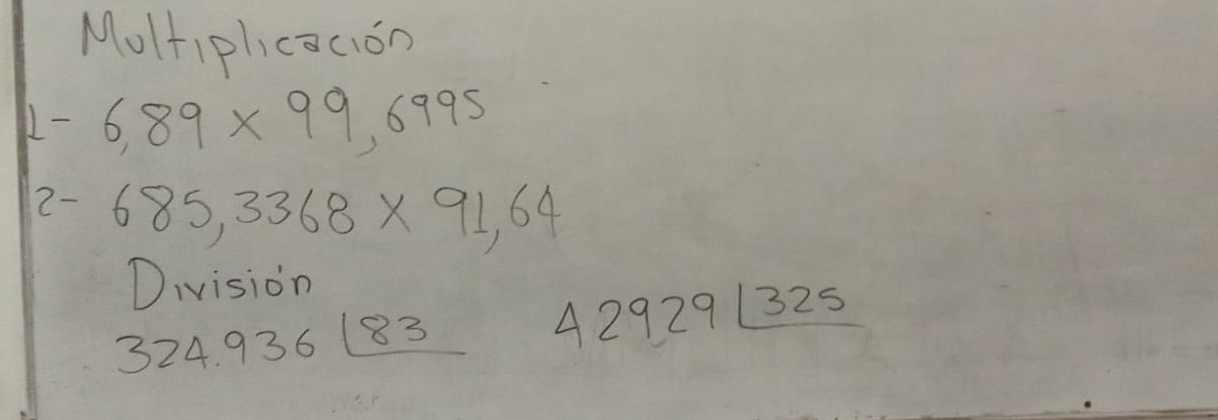 Multiplicación
1- 6,89 x 99,6995
2- 685,3368 x 91,64
División
324.936 |83 42929 |325